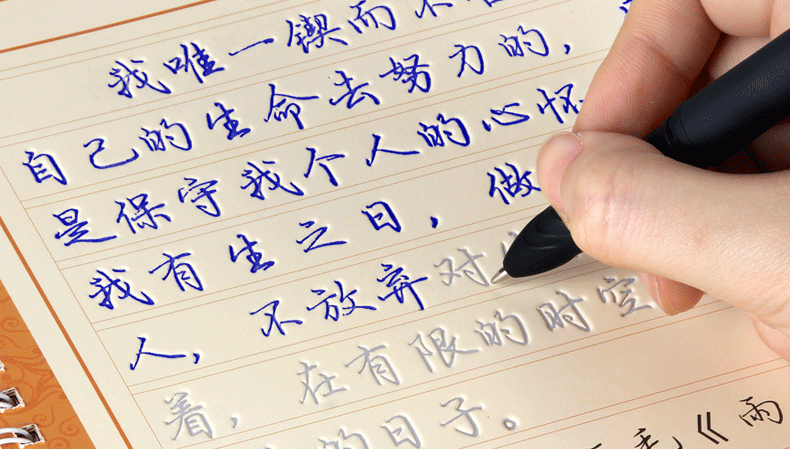 我唯一锲而不
自己的生命去努力的，
是保守我个人的心怀
我有生之日，做
人，不放弃对
着，在有限的时空
的日子。
毛《雨